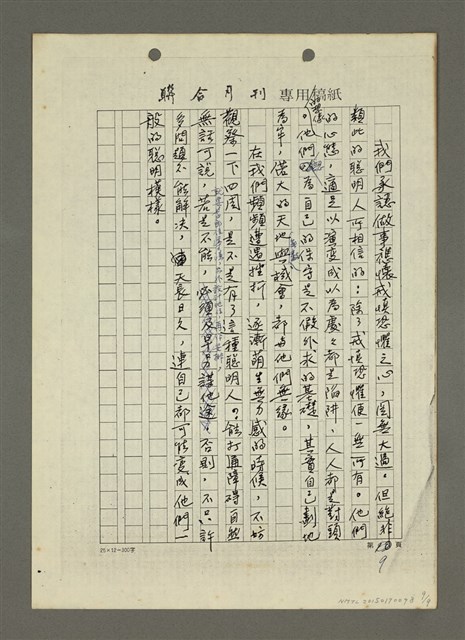 聯合月刊 專用稿紙
我們承認做事應懷戒慎恐懼之心,固無大過。但絕非
類此的聰明人所相信的:除了戒慎恐懼便一無所有。他們
的心態,適足以演變成以為處處都是陷阱,人人都是對頭
。他們以為自己的保守是不假外求的基礎,其實自己劃地
為牢,偌大的天地與機會,都與他們無緣。
在我們頻頻遭遇挫折,逐漸萌生無力感的時候,不妨
觀察一下四周,是不是有了這種聰明人?能打通障礙自然
無話可說,若是不能,必須及早另謀他途。否則,不只許
多問題不能解決,天長日久,連自己都可能變成他們一
般的聰明模樣。
第 9 頁
25×12=300字
9/9